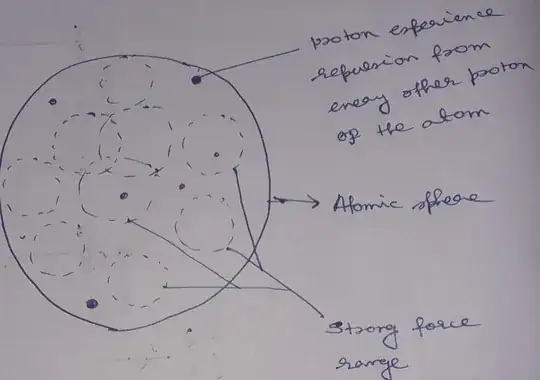 proton experience
repulsion from
every other proton
of the atom
Atomic sphere
Strong force
range